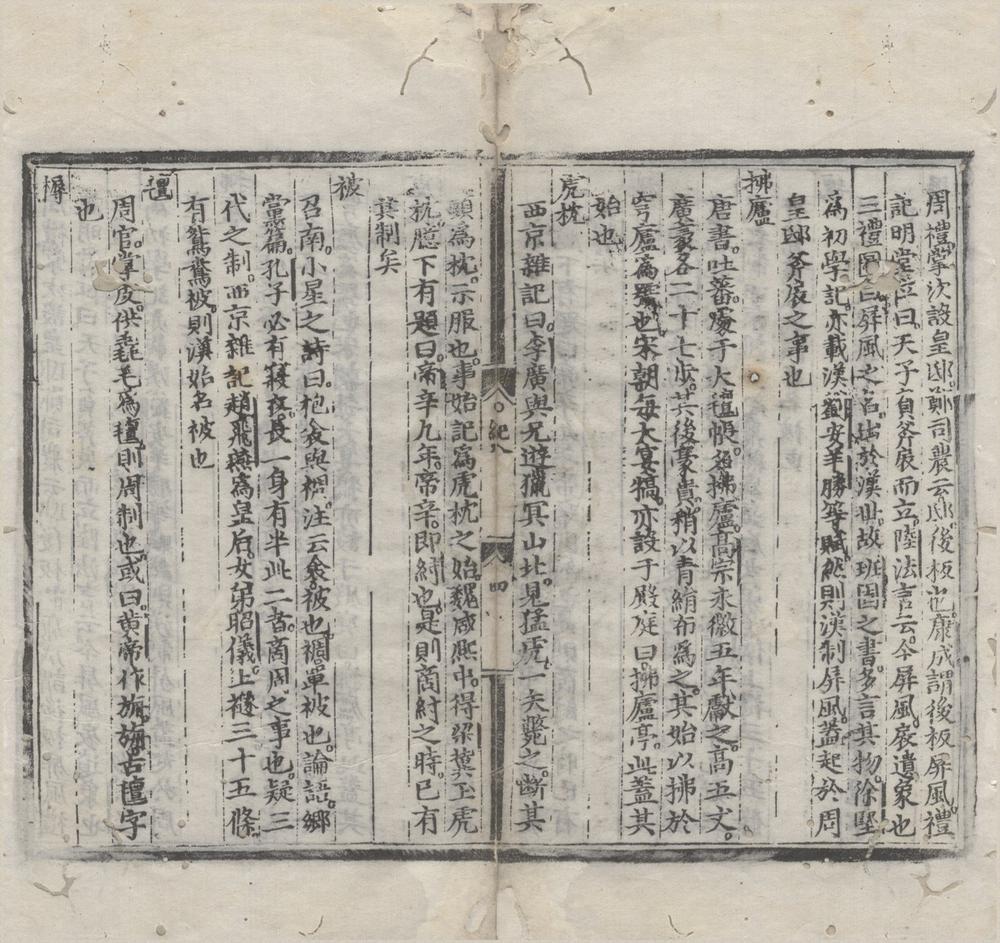 周禮掌次設皇邸鄭司農云邸後板也康成謂後板屏風禮
記明堂位曰天子負斧扆而立陸法言云今屏風扆遺象也
三禮圖曰屏風之名出於漢世故班固之書多言其物徐堅
為初學記亦載漢劉安羊勝等賦然則漢制屏風蓋起於周
皇邸斧扆之事也
拂廬
唐書吐蕃處于大氊帳名拂廬高宗永徽五年獻之高五丈
廣袤各二十七步其後豪貴稍以青絹布為之其始以拂於
穹廬為號也宋朝每大宴犒亦設于殿庭曰拂廬亭此蓋其
始也
虎枕
西京雜記曰李廣與兄遊獵冥山北見猛虎一矢斃之斷其
頭為枕示服也事始記為虎枕之始魏咸熙中得梁冀玉虎
枕臆下有題曰帝辛九年帝辛即紂也是則商紂之時已有
其制矣
被
召南小星之詩曰抱衾與裯注云衾被也裯單被也論語鄉
黨篇孔子必有寢衣長一身有半此二者商周之事也疑三
代之制西京雜記趙飛燕為皇后女弟昭儀上襚三十五條
有鴛鴦被則漢始名被也
氊
周官掌皮供毳毛為氊則周制也或曰黃帝作旃旃古氊字
也
褥
八紀八
四